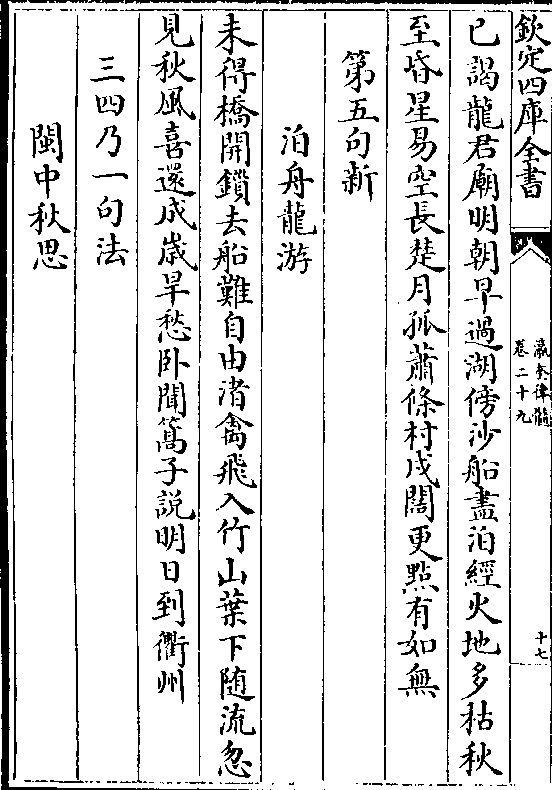 欽定四庫全書
瀛奎律髓
卷二十九
十七
已謁龍君廟明朝早過湖傍沙船盡泊經火地多枯秋
至昏星易空長楚月孤蕭條村戍闊更點有如無
第五句新
泊舟龍游
未得橋開鎖去船難自由渚禽飛入竹山葉下随流忽
見秋風喜還成歲旱愁卧聞篙子説明日到衢州
三四乃一句法
閩中秋思